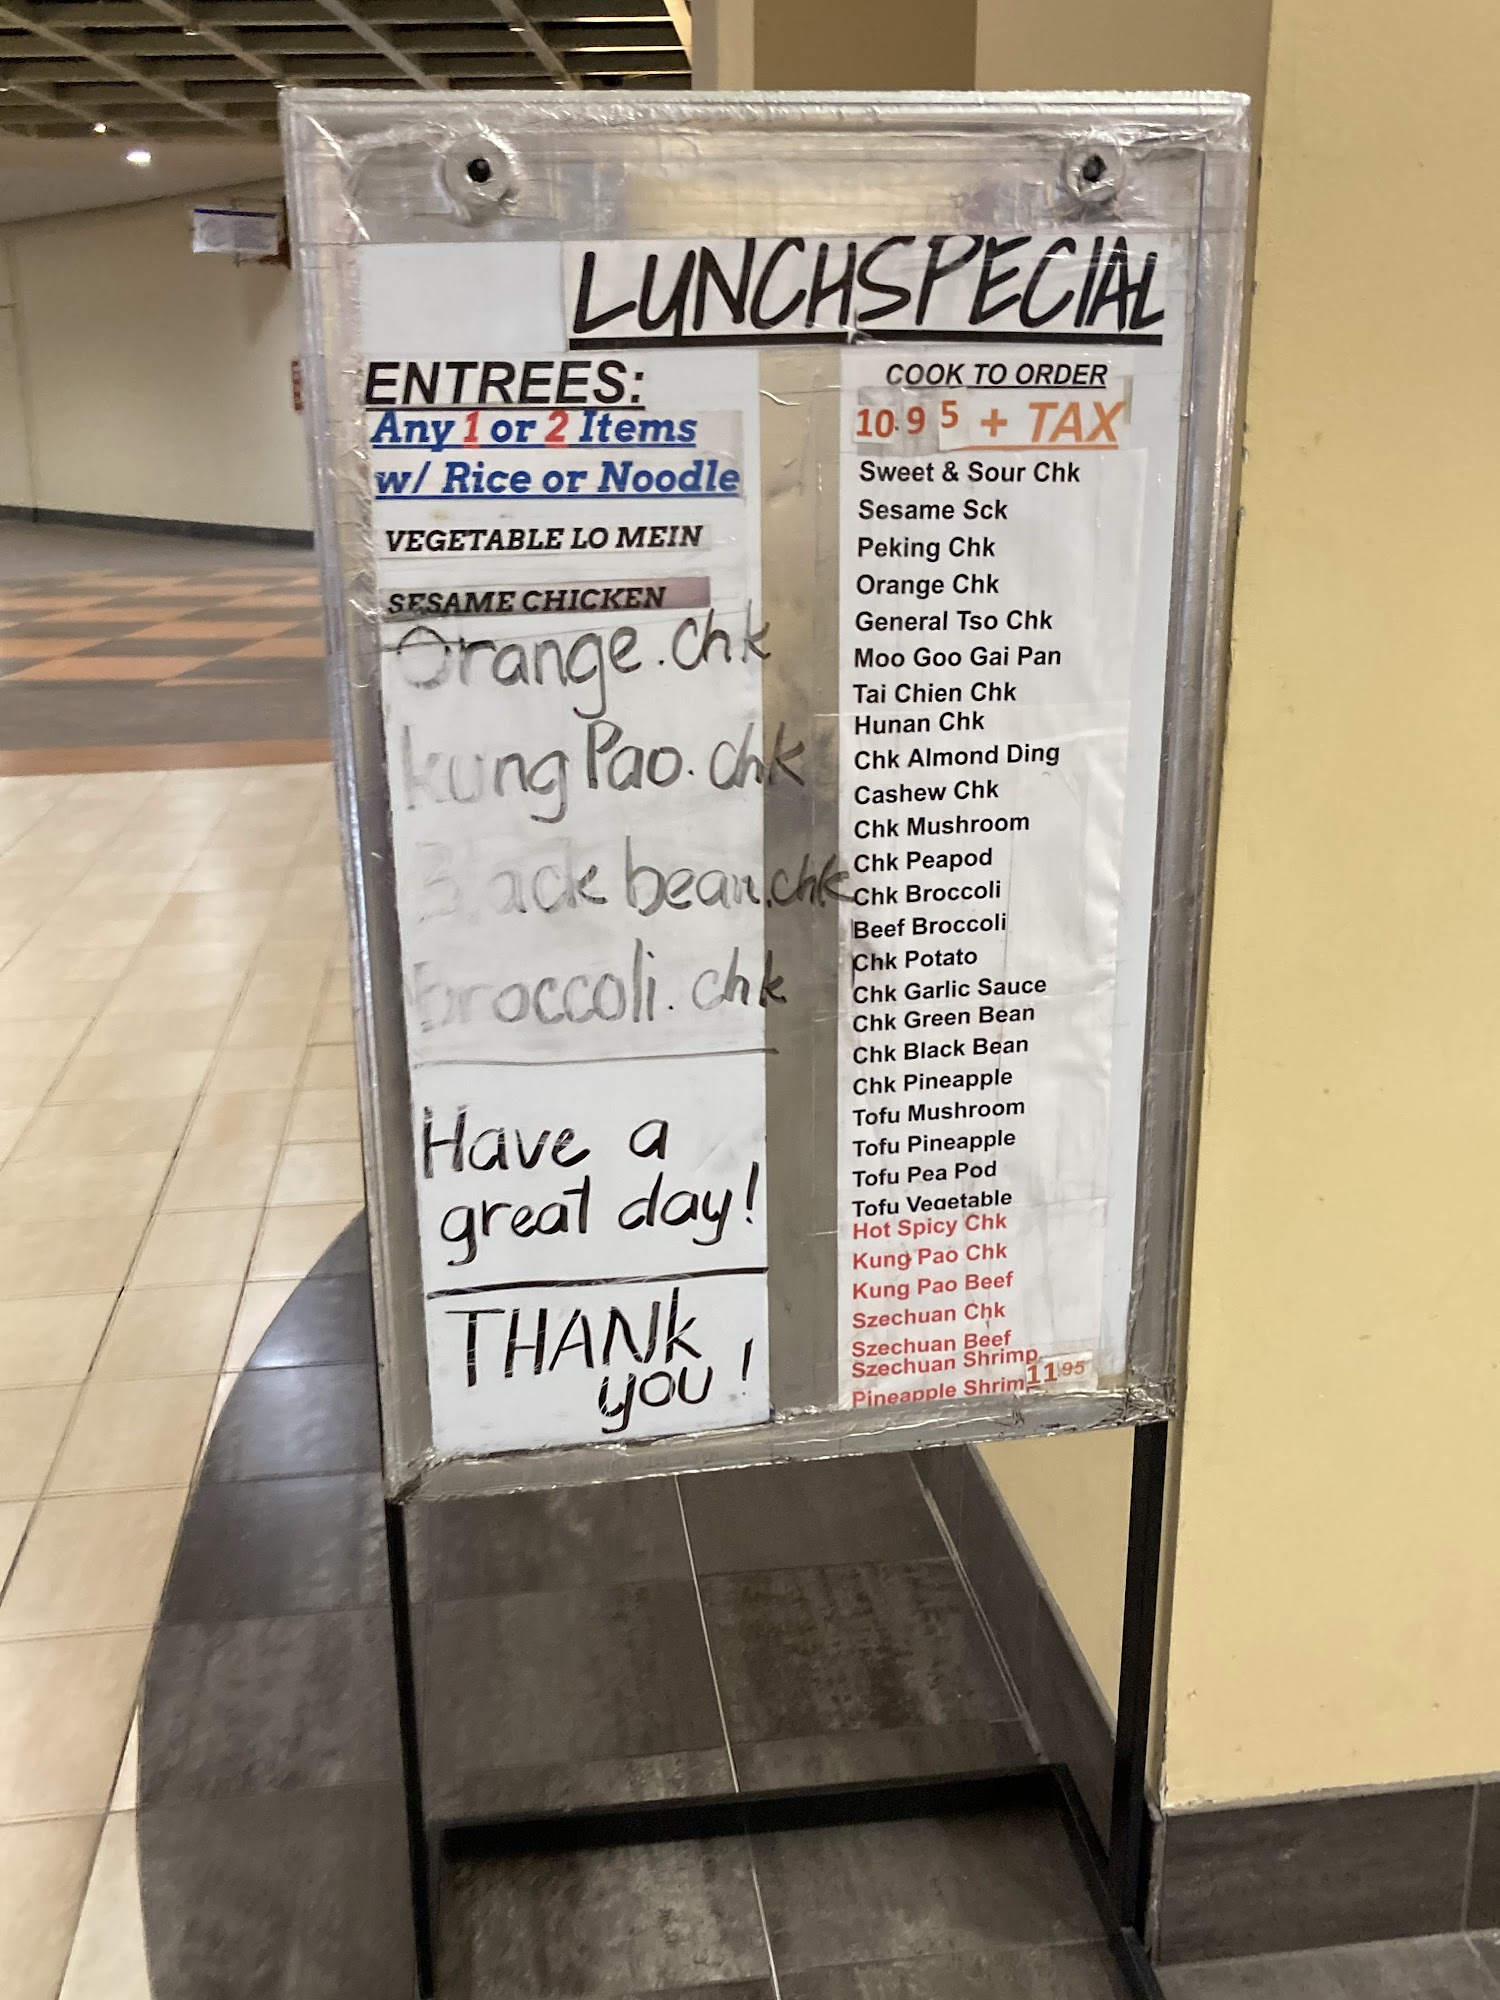 LUNCHSPECIAL
ENTREES:
Any 1 or 2 Items
w/ Rice or Noodle
VEGETABLE LO MEIN
SESAME CHICKEN
Orange.chk
kung Pao.chk
Black bean.chk
Broccoli.chk
Have a
great day!
THANK
you!
COOK TO ORDER
10.95 + TAX
Sweet & Sour Chk
Sesame Sck
Peking Chk
Orange Chk
General Tso Chk
Moo Goo Gai Pan
Tai Chien Chk
Hunan Chk
Chk Almond Ding
Cashew Chk
Chk Mushroom
Chk Peapod
Chk Broccoli
Beef Broccoli
Chk Potato
Chk Garlic Sauce
Chk Green Bean
Chk Black Bean
Chk Pineapple
Tofu Mushroom
Tofu Pineapple
Tofu Pea Pod
Tofu Vegetable
Hot Spicy Chk
Kung Pao Chk
Kung Pao Beef
Szechuan Chk
Szechuan Beef
Szechuan Shrimp
Pineapple Shrimp 11.95